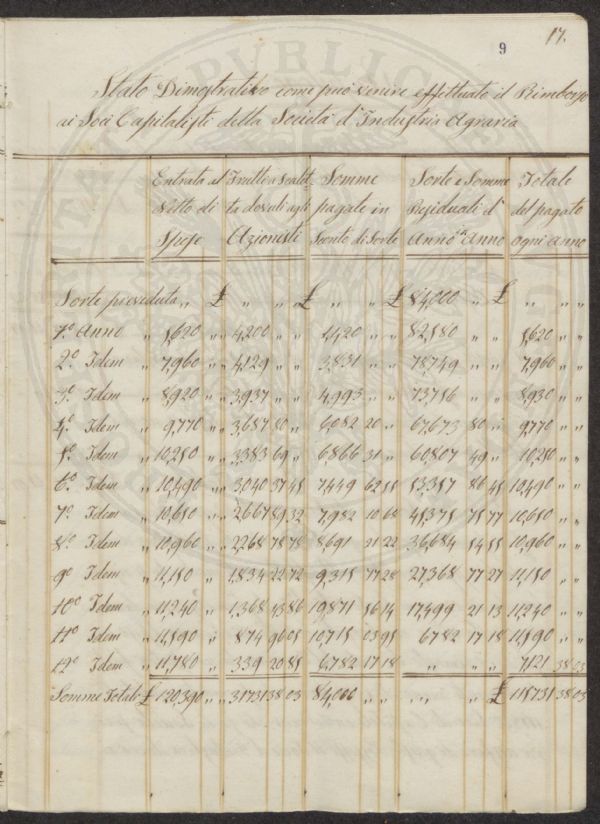 17.
9
Stato Dimostrativo come può venire effettuato il Rimborso
ai Soci Capitalisti della Società d'Industria Agraria
Entrata al Frutto a Scalet Somme Sorte e Somme Totale
Netto di ta dovuti agli pagate in Residuali d' del pagato
Spese Azionisti Sconto di Sorte Anno in Anno ogni anno
Sorte preveduta „ £ „ „ „ £ „ „ £ 84,000 „ £ „ „ „
1º Anno „ 5,620 „ „ 4,200 „ „ 1,420 „ „ 82,580 „ „ 5,620 „ „
2º Idem „ 7,960 „ „ 4,129 „ „ 3,831 „ „ 78,749 „ „ 7,960 „ „
3º Idem „ 8,920 „ „ 3,937 „ „ 4,993 „ „ 73,756 „ „ 8,930 „ „
4º Idem „ 9,770 „ „ 3,687 80 „ 6,082 20 „ 67,673 80 „ 9,770 „ „
5º Idem „ 10,250 „ „ 3,383 69 „ 6,866 31 „ 60,807 49 „ 10,250 „ „
6º Idem „ 10,490 „ „ 3,040 37 45 7,449 62 55 53,357 86 45 10,490 „ „
7º Idem „ 10,650 „ „ 2,667 89 32 7,982 10 68 45,375 75 77 10,650 „ „
8º Idem „ 10,960 „ „ 2,268 78 78 8,691 21 22 36,684 54 55 10,960 „ „
9º Idem „ 11,150 „ 1,834 22 72 9,315 77 28 27,368 77 27 11,150 „ „
10º Idem „ 11,240 „ 1,368 43 86 9871 56 14 17,499 21 13 11,240 „ „
11º Idem „ 11,590 „ 874 96 05 10,715 03 95 6782 17 18 11,590 „ „
12º Idem „ 11,780 „ 339 20 85 6,782 17 18 „ „ „ 7,121 38 03
Somme Totali £ 120,390 „ 31731 38 03 84,000 „ „ „ „ „ £ 115731 38 03